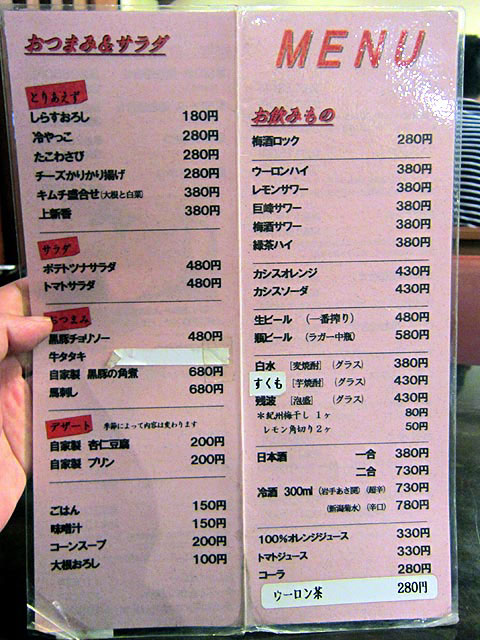 おつまみ&サラダ
とりあえず
しらすおろし 180円
冷やっこ 280円
たこわさび 280円
チーズかりかり揚げ 280円
キムチ盛合せ(大根と白菜) 380円
上新香 380円
サラダ
ポテトツナサラダ 480円
トマトサラダ 480円
おつまみ
黒豚チョリソー 480円
牛タタキ
自家製 黒豚の角煮 680円
馬刺し 680円
デザート 季節によって内容は変わります
自家製 杏仁豆腐 200円
自家製 プリン 200円
ごはん 150円
味噌汁 150円
コーンスープ 200円
大根おろし 100円
MENU
お飲みもの
梅酒ロック 280円
ウーロンハイ 380円
レモンサワー 380円
巨峰サワー 380円
梅酒サワー 380円
緑茶ハイ 380円
カシスオレンジ 430円
カシスソーダ 430円
生ビール (一番搾り) 480円
瓶ビール (ラガー中瓶) 580円
白水 [麦焼酎] (グラス) 380円
すくも [芋焼酎] (グラス) 430円
残波 [泡盛] (グラス) 430円
*紀州梅干し 1ヶ 80円
レモン角切り2ヶ 50円
日本酒 一合 380円
二合 730円
冷酒 300ml (岩手あさ開) (超辛) 730円
(新潟菊水) (辛口) 780円
100%オレンジジュース 330円
トマトジュース 330円
コーラ 280円
ウーロン茶 280円